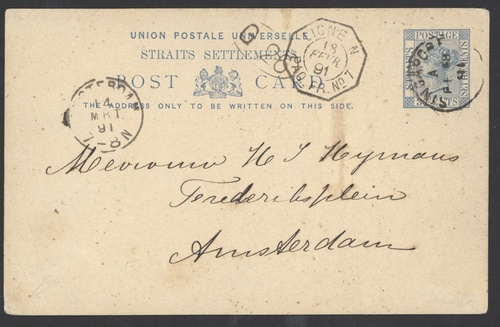 UNION POSTALE UNIVERSELLE.
STRAITS SETTLEMENTS
POST CARD
THE ADDRESS ONLY TO BE WRITTEN ON THIS SIDE.
LIGNE N
18
FEVR
91
PAQ. FR. No 7
POSTAGE
SINGAPORE
A
AMSTERDAM
14
MRT
91
7-8N
Mevrouw H J Heymans
Frederiksplein
Amsterdam